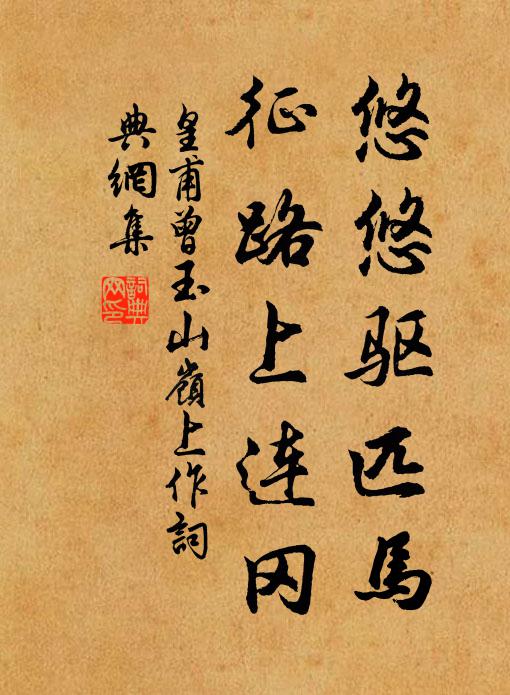 悠悠驱匹馬
征路上连冈
皇甫曾玉山嶺上作詞
典網集
詞典网印